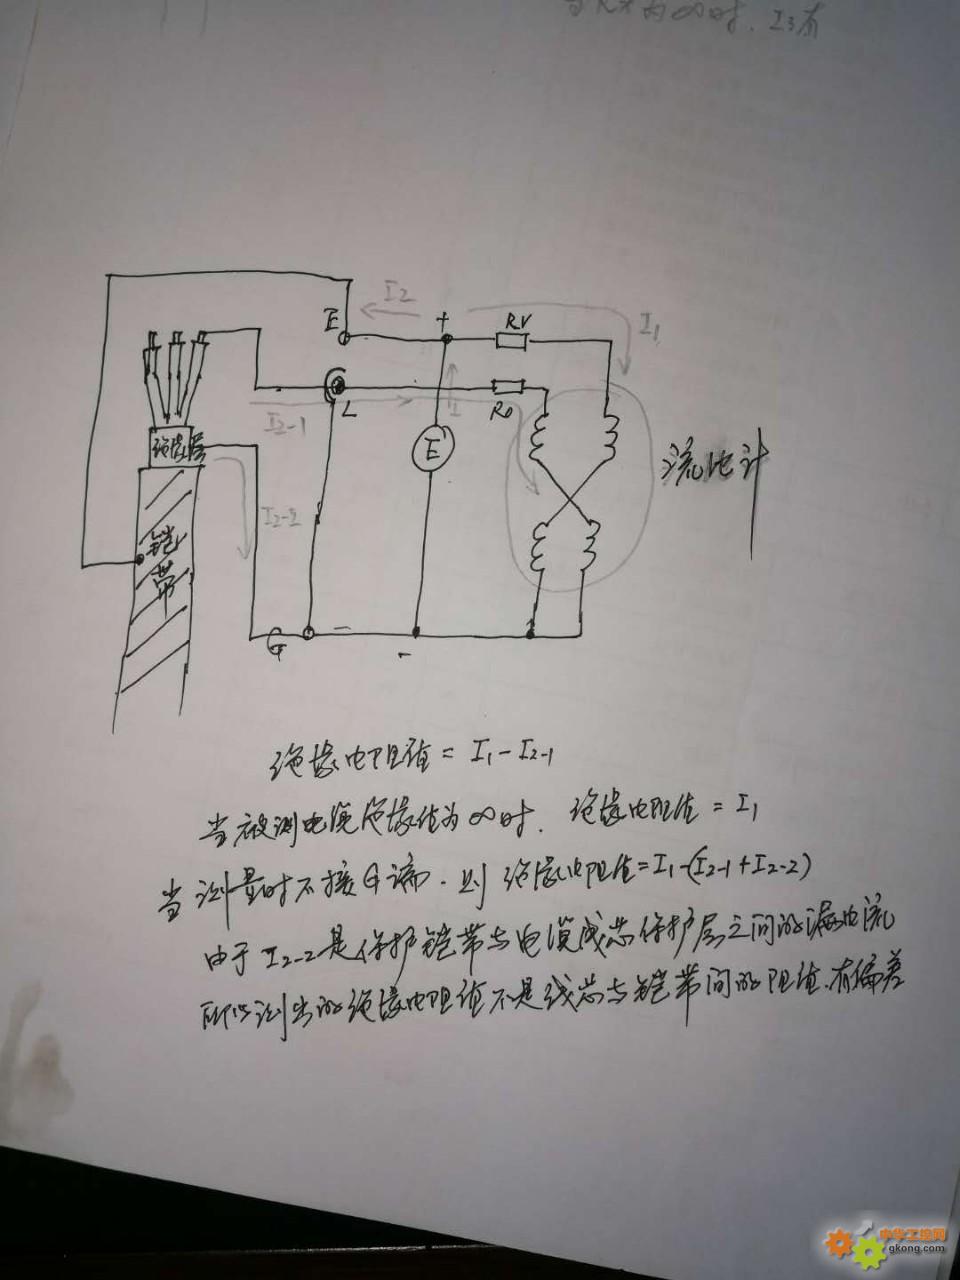 当Rx为∞时，I3有
I2
E
+
RV
I1
L
R0
I2-1
I
E
流比计
绝缘层
I2-2
铠
带
G
-
-
绝缘电阻值 = I1 - I2-1
当被测电缆绝缘值为∞时. 绝缘电阻值 = I1
当测量时不接G端. 则 绝缘电阻值=I1-(I2-1+I2-2)
由于I2-2是保护铠带与电缆线芯保护层之间的漏电流
所以测出的绝缘电阻值不是线芯与铠带间的阻值.有偏差
中华工控网
gkong.com